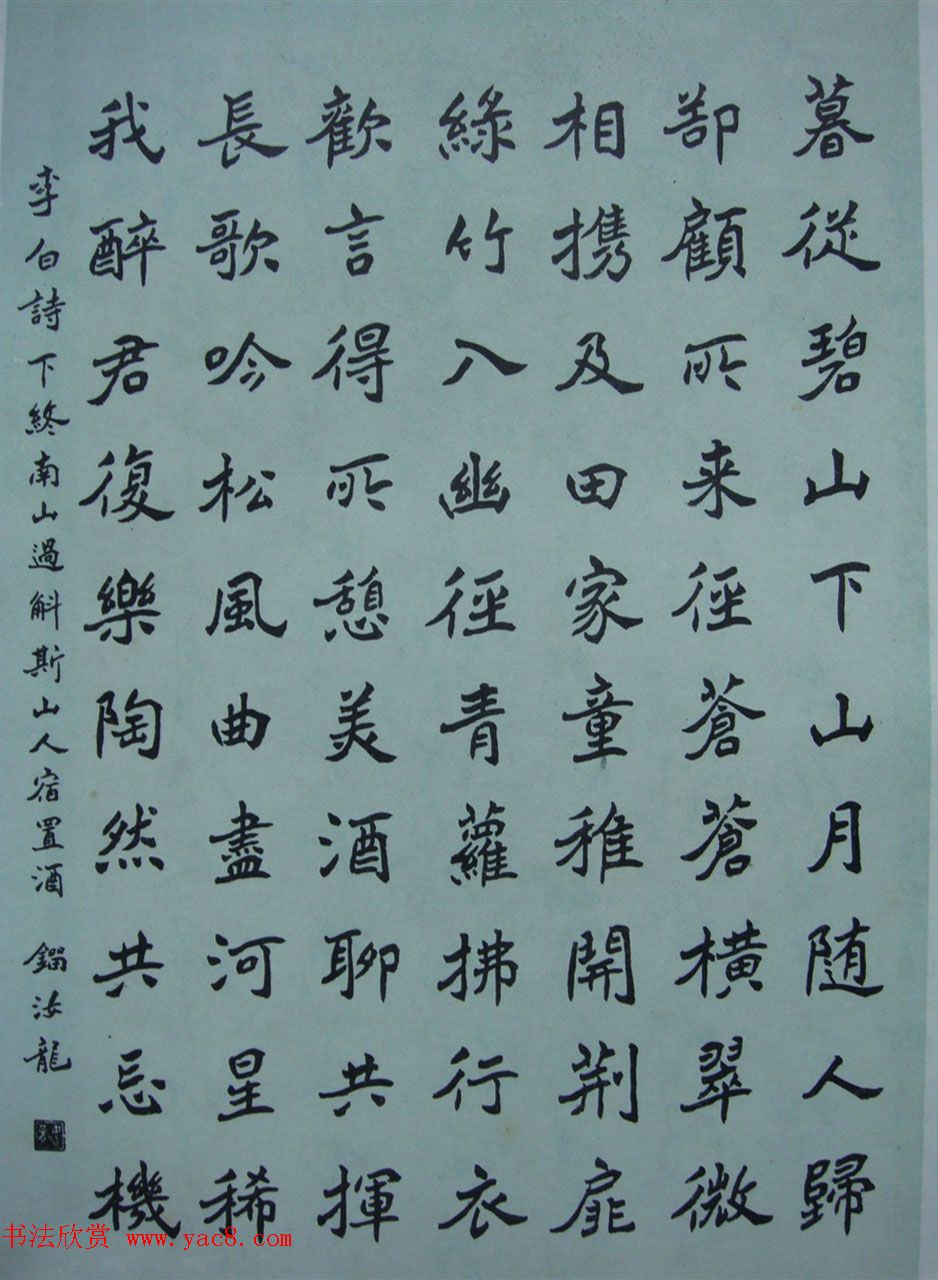 暮從碧山下山月随人歸
郤顧所来徑蒼蒼橫翠微
相携及田家童稚開荆扉
綠竹入幽徑青蘿拂行衣
歡言得所憩美酒聊共揮
長歌吟松風曲盡河星稀
我醉君復樂陶然共忘機
李白詩下終南山過斛斯山人宿置酒 鎦汝龍
书法欣赏 www.yac8.com